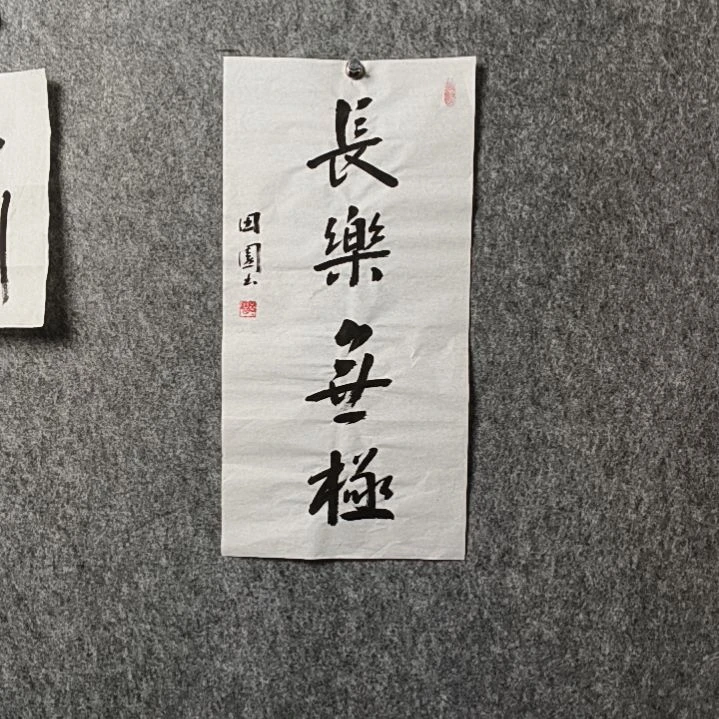 長樂無極
田園书